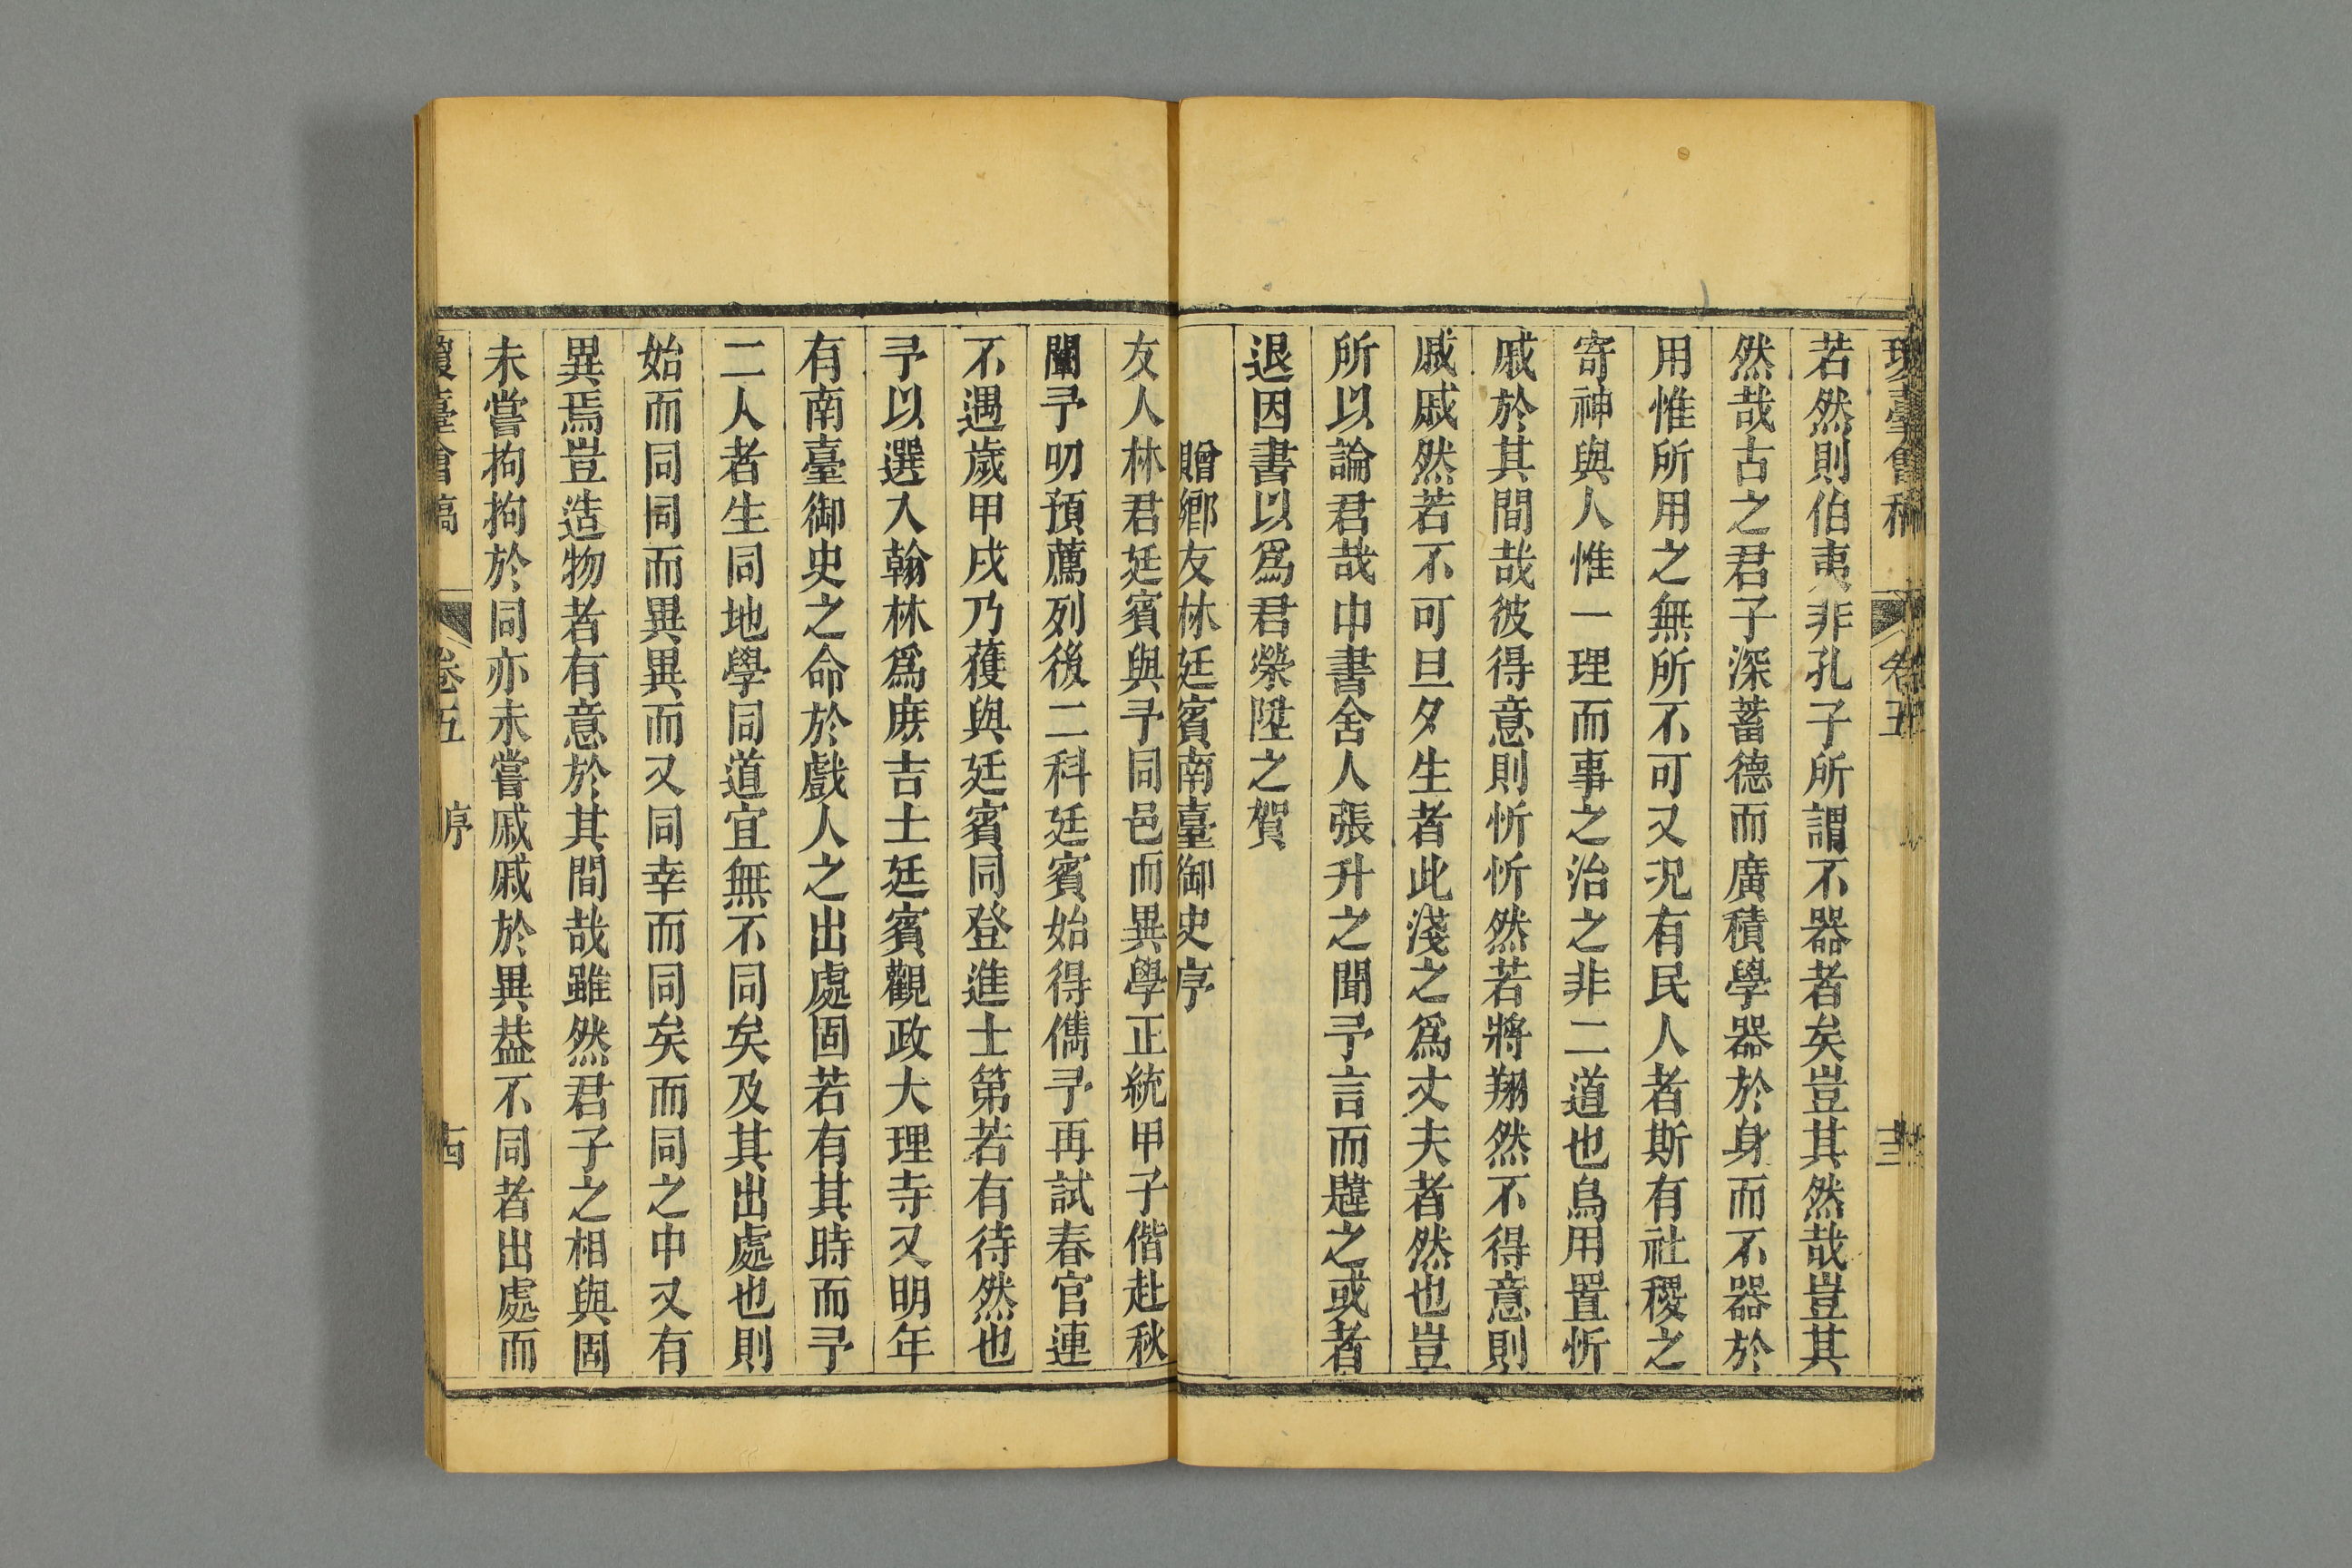 瓊臺會稿 卷五 十三
若然則伯夷非孔子所謂不器者矣豈其然哉豈其
然哉古之君子深蓄德而廣積學器於身而不器於
用惟所用之無所不可又況有民人者斯有社稷之
寄神與人惟一理而事之治之非二道也烏用置忻
戚於其間哉彼得意則忻忻然若將翔然不得意則
戚戚然若不可旦夕生者此淺之爲丈夫者然也豈
所以論君哉中書舍人張升之聞予言而韙之或者
退因書以爲君榮陞之賀
贈鄉友林廷賓南臺御史序
友人林君廷賓與予同邑而異學正統甲子偕赴秋
闈予叨預薦列後二科廷賓始得儁予再試春官連
不遇歲甲戌乃獲與廷賓同登進士第若有待然也
予以選入翰林爲庶吉士廷賓觀政大理寺又明年
有南臺御史之命於戲人之出處固若有其時而予
二人者生同地學同道宜無不同矣及其出處也則
始而同同而異異而又同幸而同矣而同之中又有
異焉豈造物者有意於其間哉雖然君子之相與固
未嘗拘拘於同亦未嘗戚戚於異葢不同者出處而
瓊臺會稿 卷五 序 十四